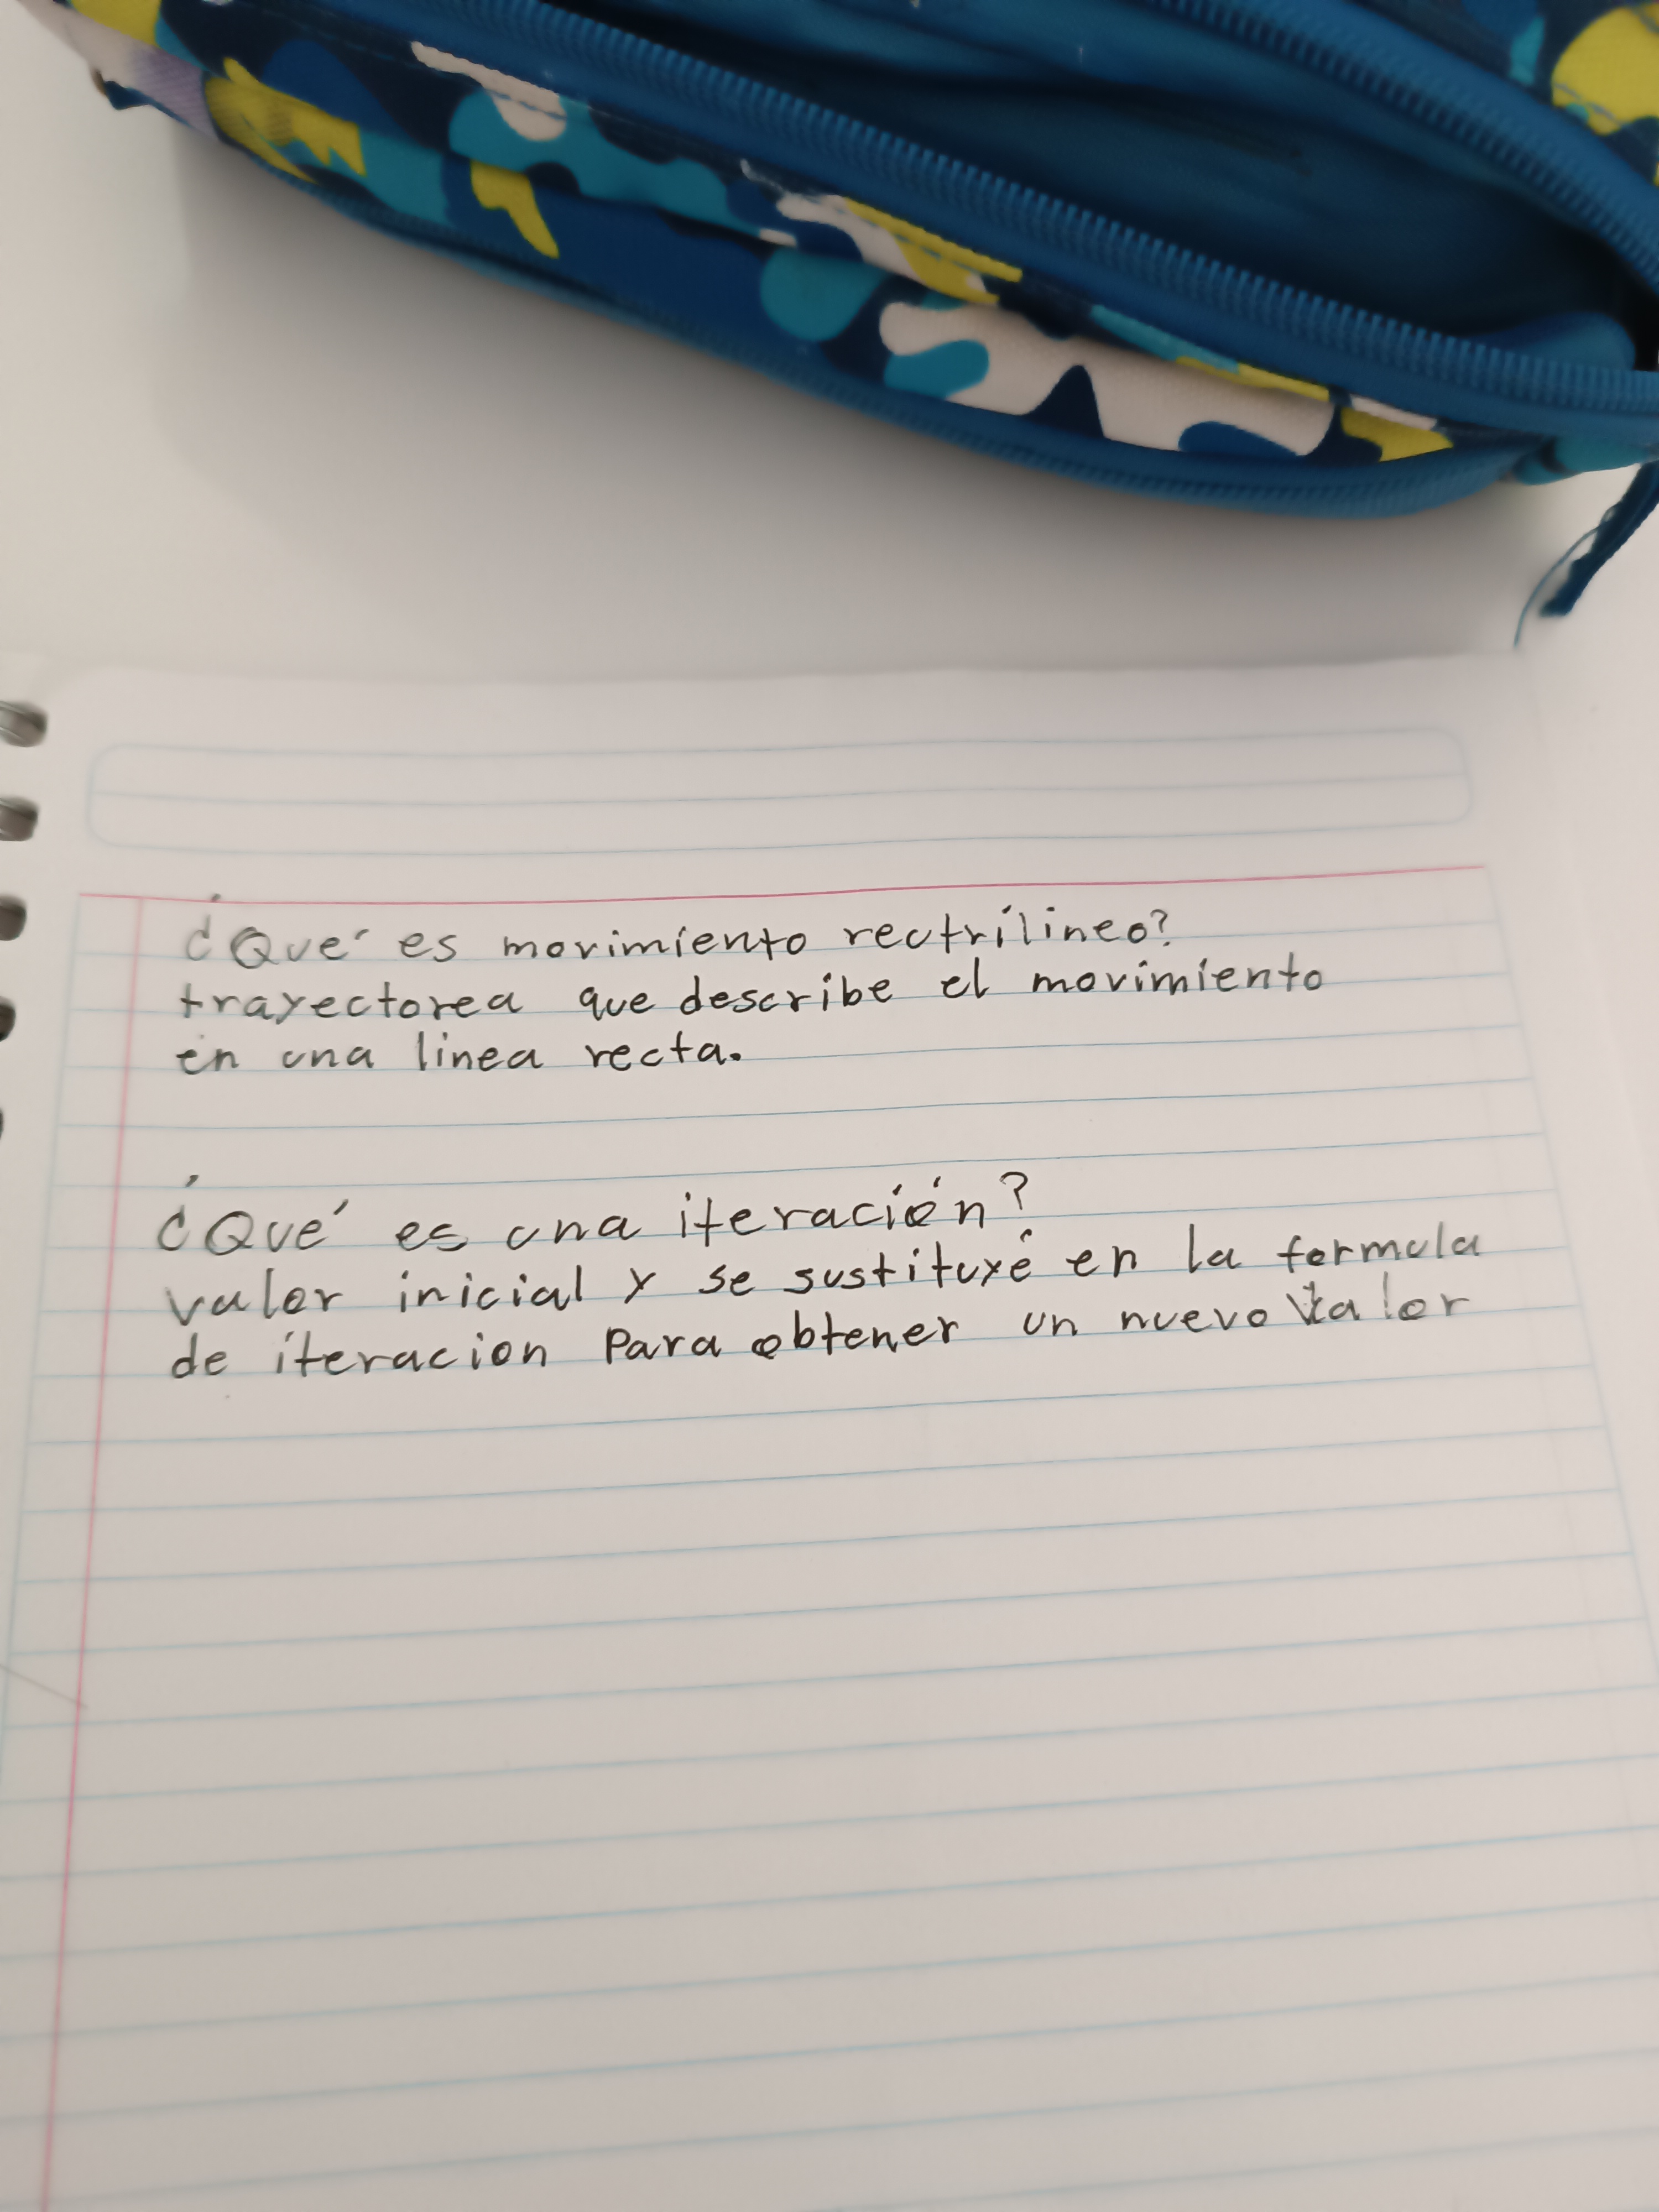 ¿Qué es movimiento rectrilineo?
trayectorea que describe el movimiento
en una linea recta.
¿Qué es una iteración?
valor inicial y se sustituyé en la formula
de iteracion Para obtener un nuevo valor